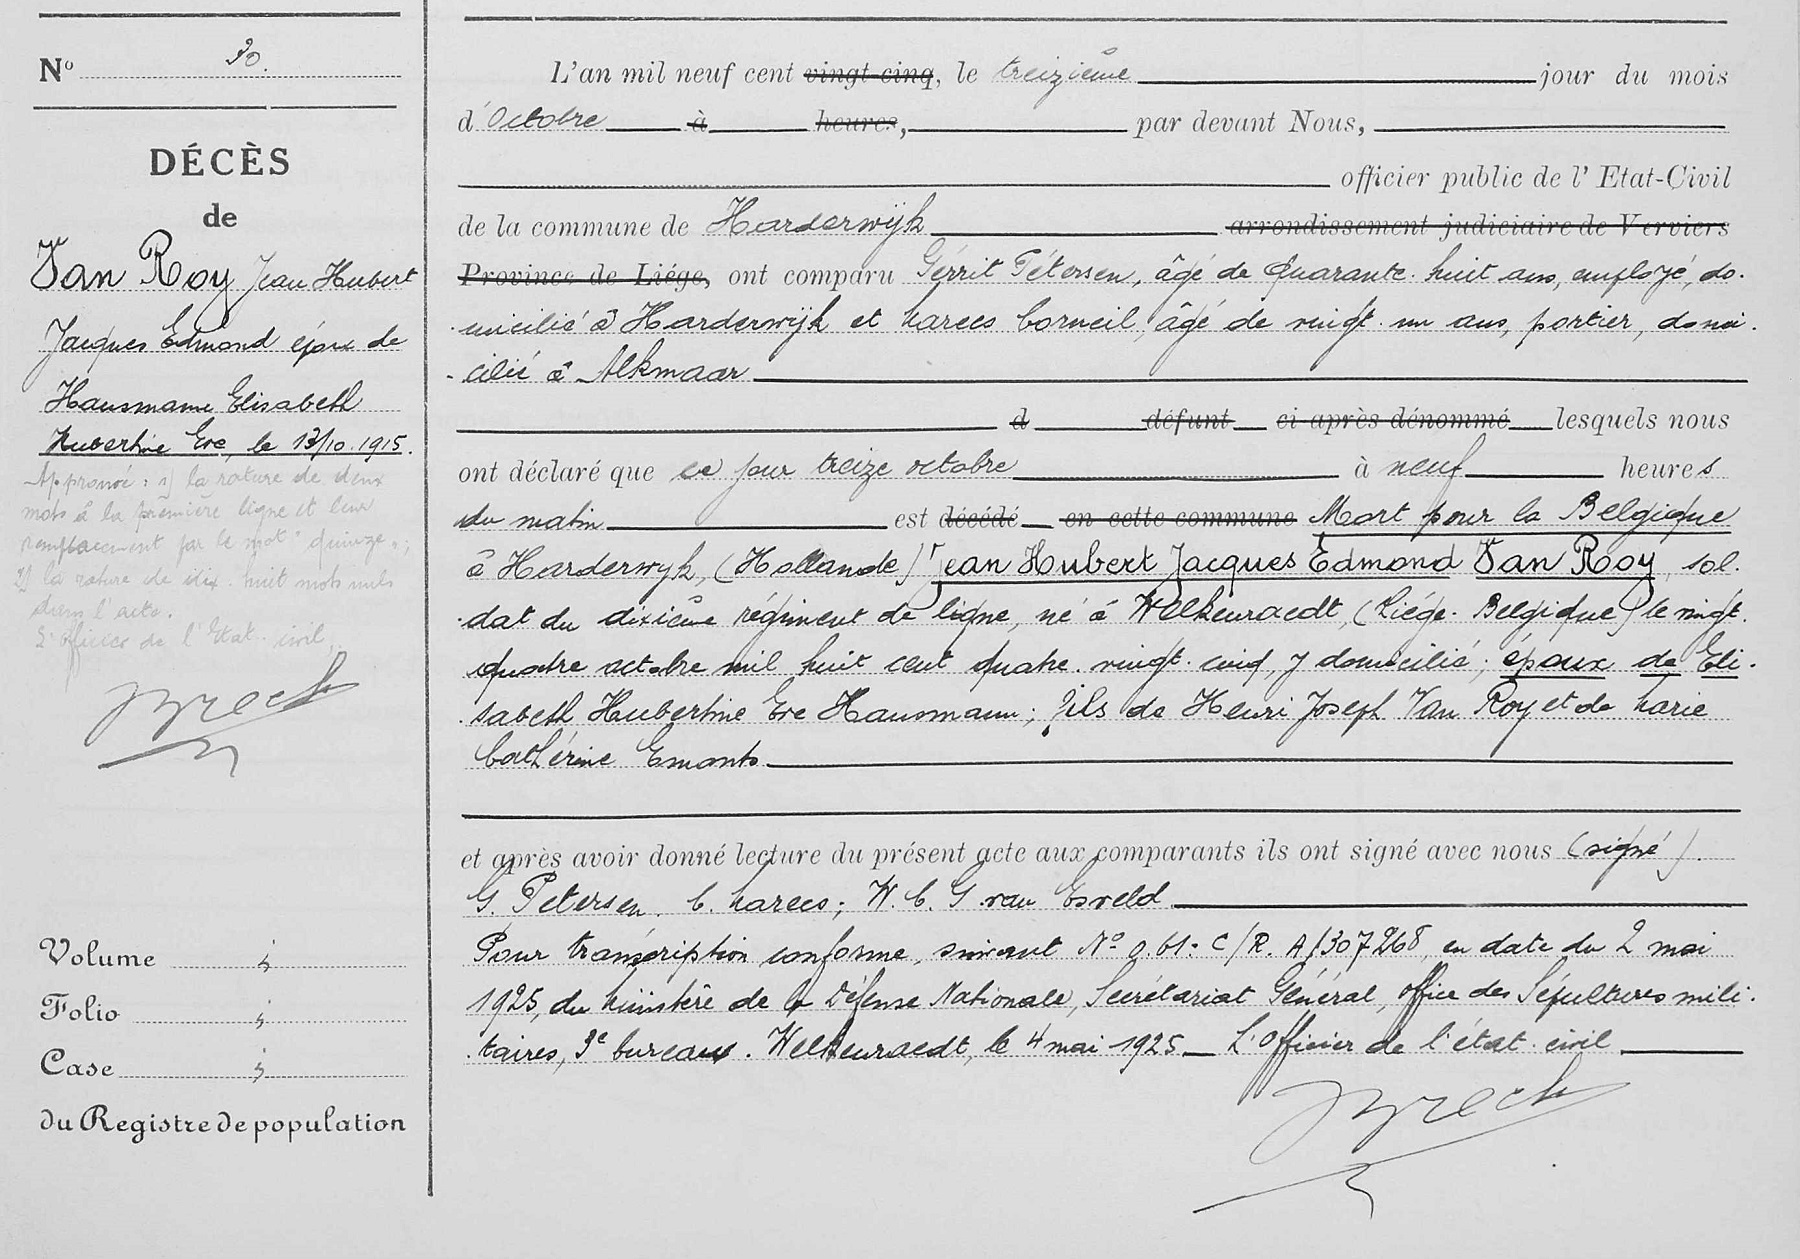 Nº 30.
DÉCÈS
de
Van Roy Jean Hubert
Jacques Edmond époux de
Hausmann Elisabeth
Hubertine Eve, le 13/10.1915.
Approuvé : 1) la rature de deux
mots à la première ligne et leur
remplacement par le mot "quinze";
2) la rature de dix-huit mots nuls
dans l'acte.
L'officier de l'Etat-civil,
Volume
Folio
Case
du Registre de population
L'an mil neuf cent vingt-cinq, le treizième jour du mois
d'Octobre à heures, par devant Nous,
officier public de l'Etat-Civil
de la commune de Harderwijk arrondissement judiciaire de Verviers
Province de Liége, ont comparu Gérrit Pétersen, âgé de Quarante-huit ans, employé, do-
micilié à Harderwijk et Marees Corneil, âgé de vingt-un ans, portier, domi-
cilié à Alkmaar
d défunt ci-après dénommé lesquels nous
ont déclaré que ce jour treize octobre à neuf heures
du matin est décédé en cette commune Mort pour la Belgique
à Harderwyk, (Hollande) Jean Hubert Jacques Edmond Van Roy, sol-
dat du dixième régiment de ligne, né à Welkenraedt, (Liége-Belgique) le vingt-
quatre octobre mil huit cent quatre-vingt-cinq, y domicilié; époux de Eli-
sabeth Hubertine Eve Hausmann; fils de Henri Joseph Van Roy et de Marie
Cathérine Emonts
et après avoir donné lecture du présent acte aux comparants ils ont signé avec nous (signé)
G. Petersen. C. Marees; W. C. G van Esveld
Pour transcription conforme, suivant Nº 0.61: C/R. A/307268, en date du 2 mai
1925, du Ministère de la Défense Nationale, Secrétariat Général, office des Sépultures mili-
taires, 3e bureau. Welkenraedt, le 4 mai 1925 L'officier de l'état-civil